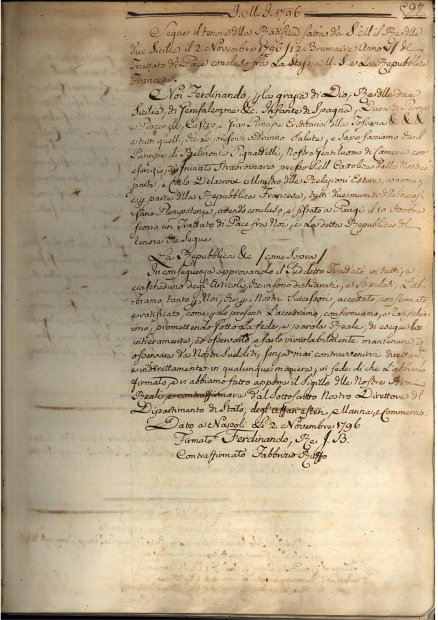 J. M. J. 1796 597
Segue il tenore della Ratifica fatta da S. M. il Re delle
due Sicilie il 2 Novembre 1796 12 Brumaire Anno del
Trattato di Pace concluso fra La Stessa M. S. e La Repubblica
Francese.
Noi Ferdinando, p la grazia di Dio, Re delle due
Sicilie, di Gerusalemme &c. Infante di Spagna, Duca di Parma
e Piacenza, Castro, e Gran Principe Ereditario della Toscana & & &
a tutti quelli, che le presenti vedranno Salute, e Sapere facciamo che il
Principe di Belmonte Pignatelli, Nostro Gentiluomo di Camera con
esercizio, ed Inviato Straordinario presso S. M. Cattolica p la Nostra
parte, e Carlo Delacroix Ministro delle Relazioni Estere, a nome,
e p parte della Repubblica Francese, tutti due muniti delle neces-
sarie Plenipotenze, attendo concluso, e fissato a Parigi il 10 Ottobre
scorso un Trattato di Pace fra Noi, e La detta Repubblica del
tenore che Segue.
La Repubblica &c. / come Sopra /
In conseguenza approvando il Suddetto Trattato in tutti, e
ciascheduno degli Articoli, che in sono dichiarati, e Stipulati, L'ab-
biamo tanto p Noi, che p i Nostri Successori, accettato, confermato,
e ratificato, come p le presenti L'accettiamo, confermiamo, e ratifichia-
mo, promettendo Sotto La fede, e parola Reale, di eseguirlo
interamente, ed osservarlo e farlo inviolabilmente mantenere, ed
osservare da' Nostri Sudditi, senza mai contravvenirvi direttam.
e indirettamente in qualunque maniera; in fede di che L'abbiamo
firmato, e vi abbiamo fatto apporre il Sigillo delle Nostre Armi
Reali, e contraffirmare dal Sottoscritto Nostro Direttore del
Dipartimento di Stato, degli affari esteri, Marina, e Commercio.
Dato a Napoli li 2 Novembre 1796
Firmato Ferdinando, Re J. B.
Contraffirmato Fabbrizio Ruffo